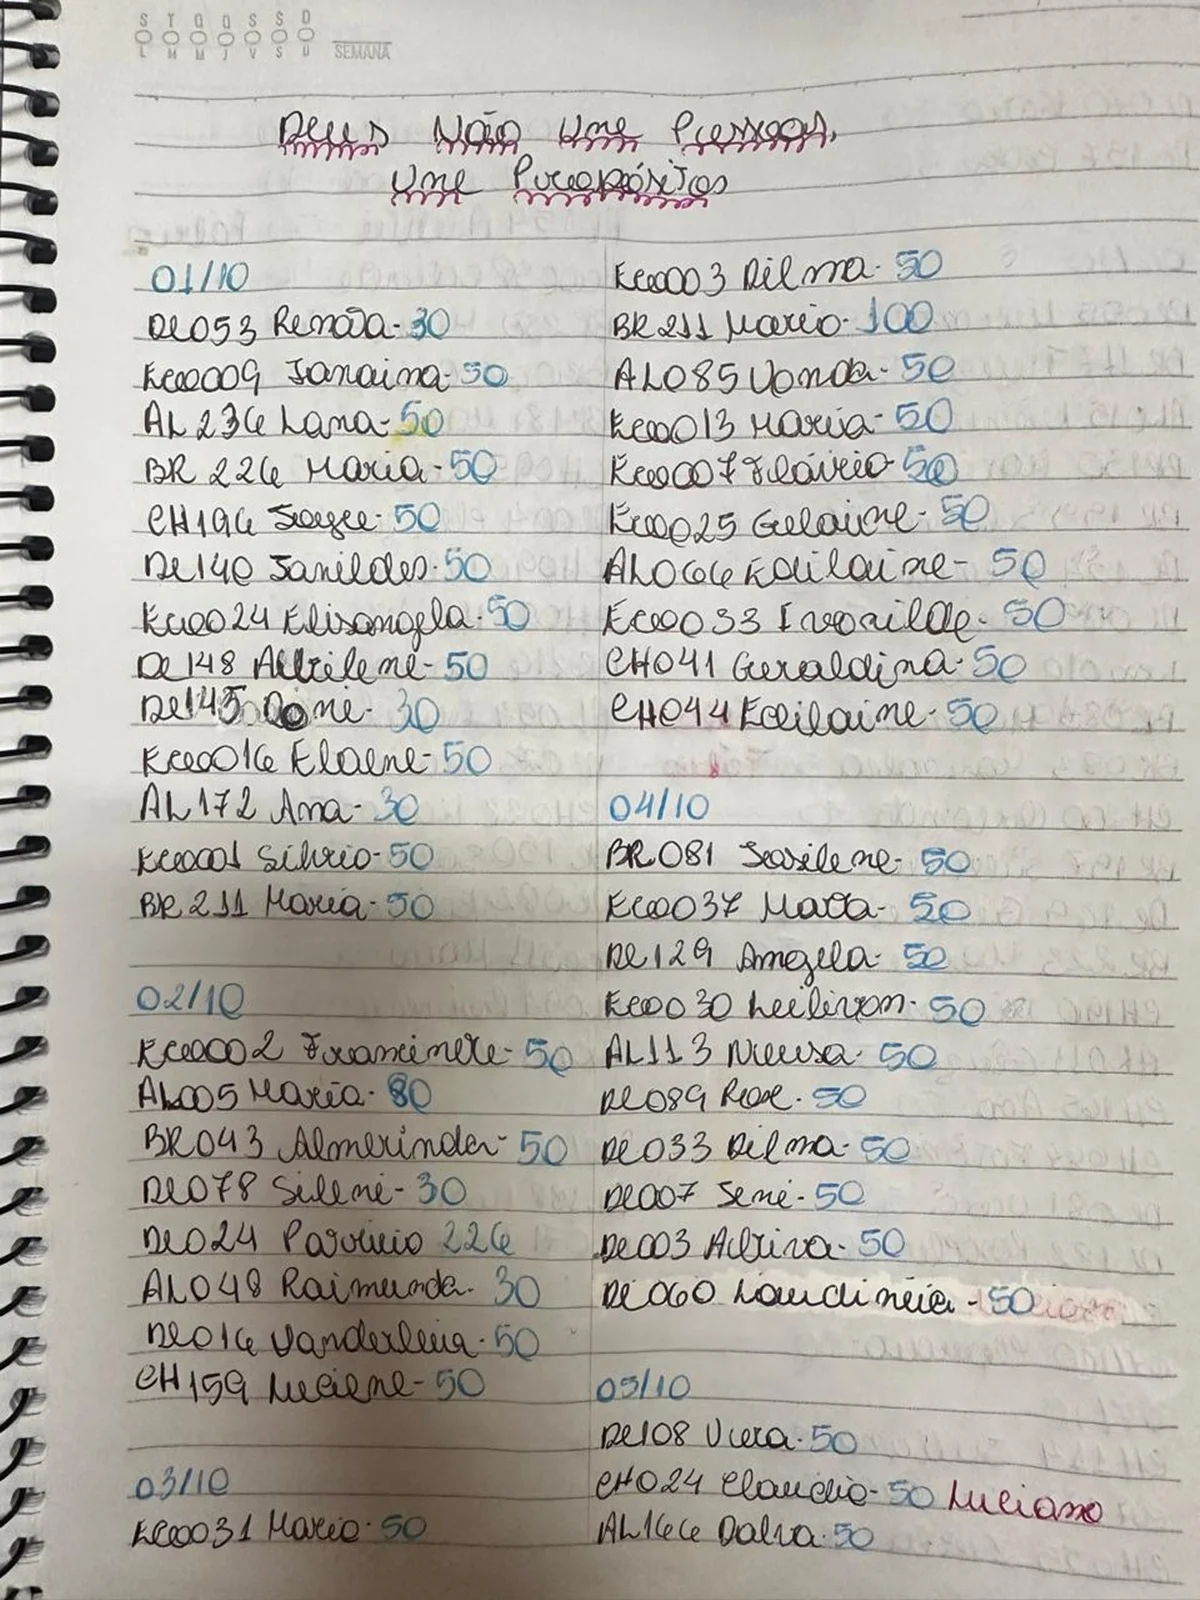 S T Q Q S S D
L M M J V S D
SEMANA
Deus Não Une Pessoas,
Une Propósitos
01/10
De053 Renata- 30
Eco009 Janaina- 50
AL236 Lana- 50
BR 226 Maria- 50
CH196 Joyce- 50
De140 Janildes- 50
Eco024 Elisangela- 50
De148 Altilene- 50
De145 - 30
Eco016 Elaene- 50
AL172 Ana- 30
Eco001 Silvio- 50
BR211 Maria- 50
02/10
Eco002 Francinete- 50
AL005 Maria- 80
BR043 Almerinda- 50
De078 Silene- 30
De024 Patricio 226
AL048 Raimunda- 30
De016 Vanderleia- 50
CH159 Luciene- 50
03/10
Eco031 Maria- 50
Eco003 Dilma- 50
BR211 Mario- 100
AL085 Vanda- 50
Eco013 Maria- 50
Eco007 Flávio- 50
Eco025 Gelaine- 50
AL066 Edilaine- 50
Eco033 Ivonilde- 50
CH041 Geraldina- 50
CH044 Edilaine- 50
04/10
BR081 Josilene- 50
Eco037 Mata- 50
De129 Angela- 50
Eco030 Leilivan- 50
AL113 Neusa- 50
De089 Rose- 50
De033 Dilma- 50
De007 Jene- 50
De003 Altiva- 50
De060 Laudinéia- 50
05/10
De108 Vera- 50
CH024 Claudia- 50 Luciano
AL166 Dalva- 50